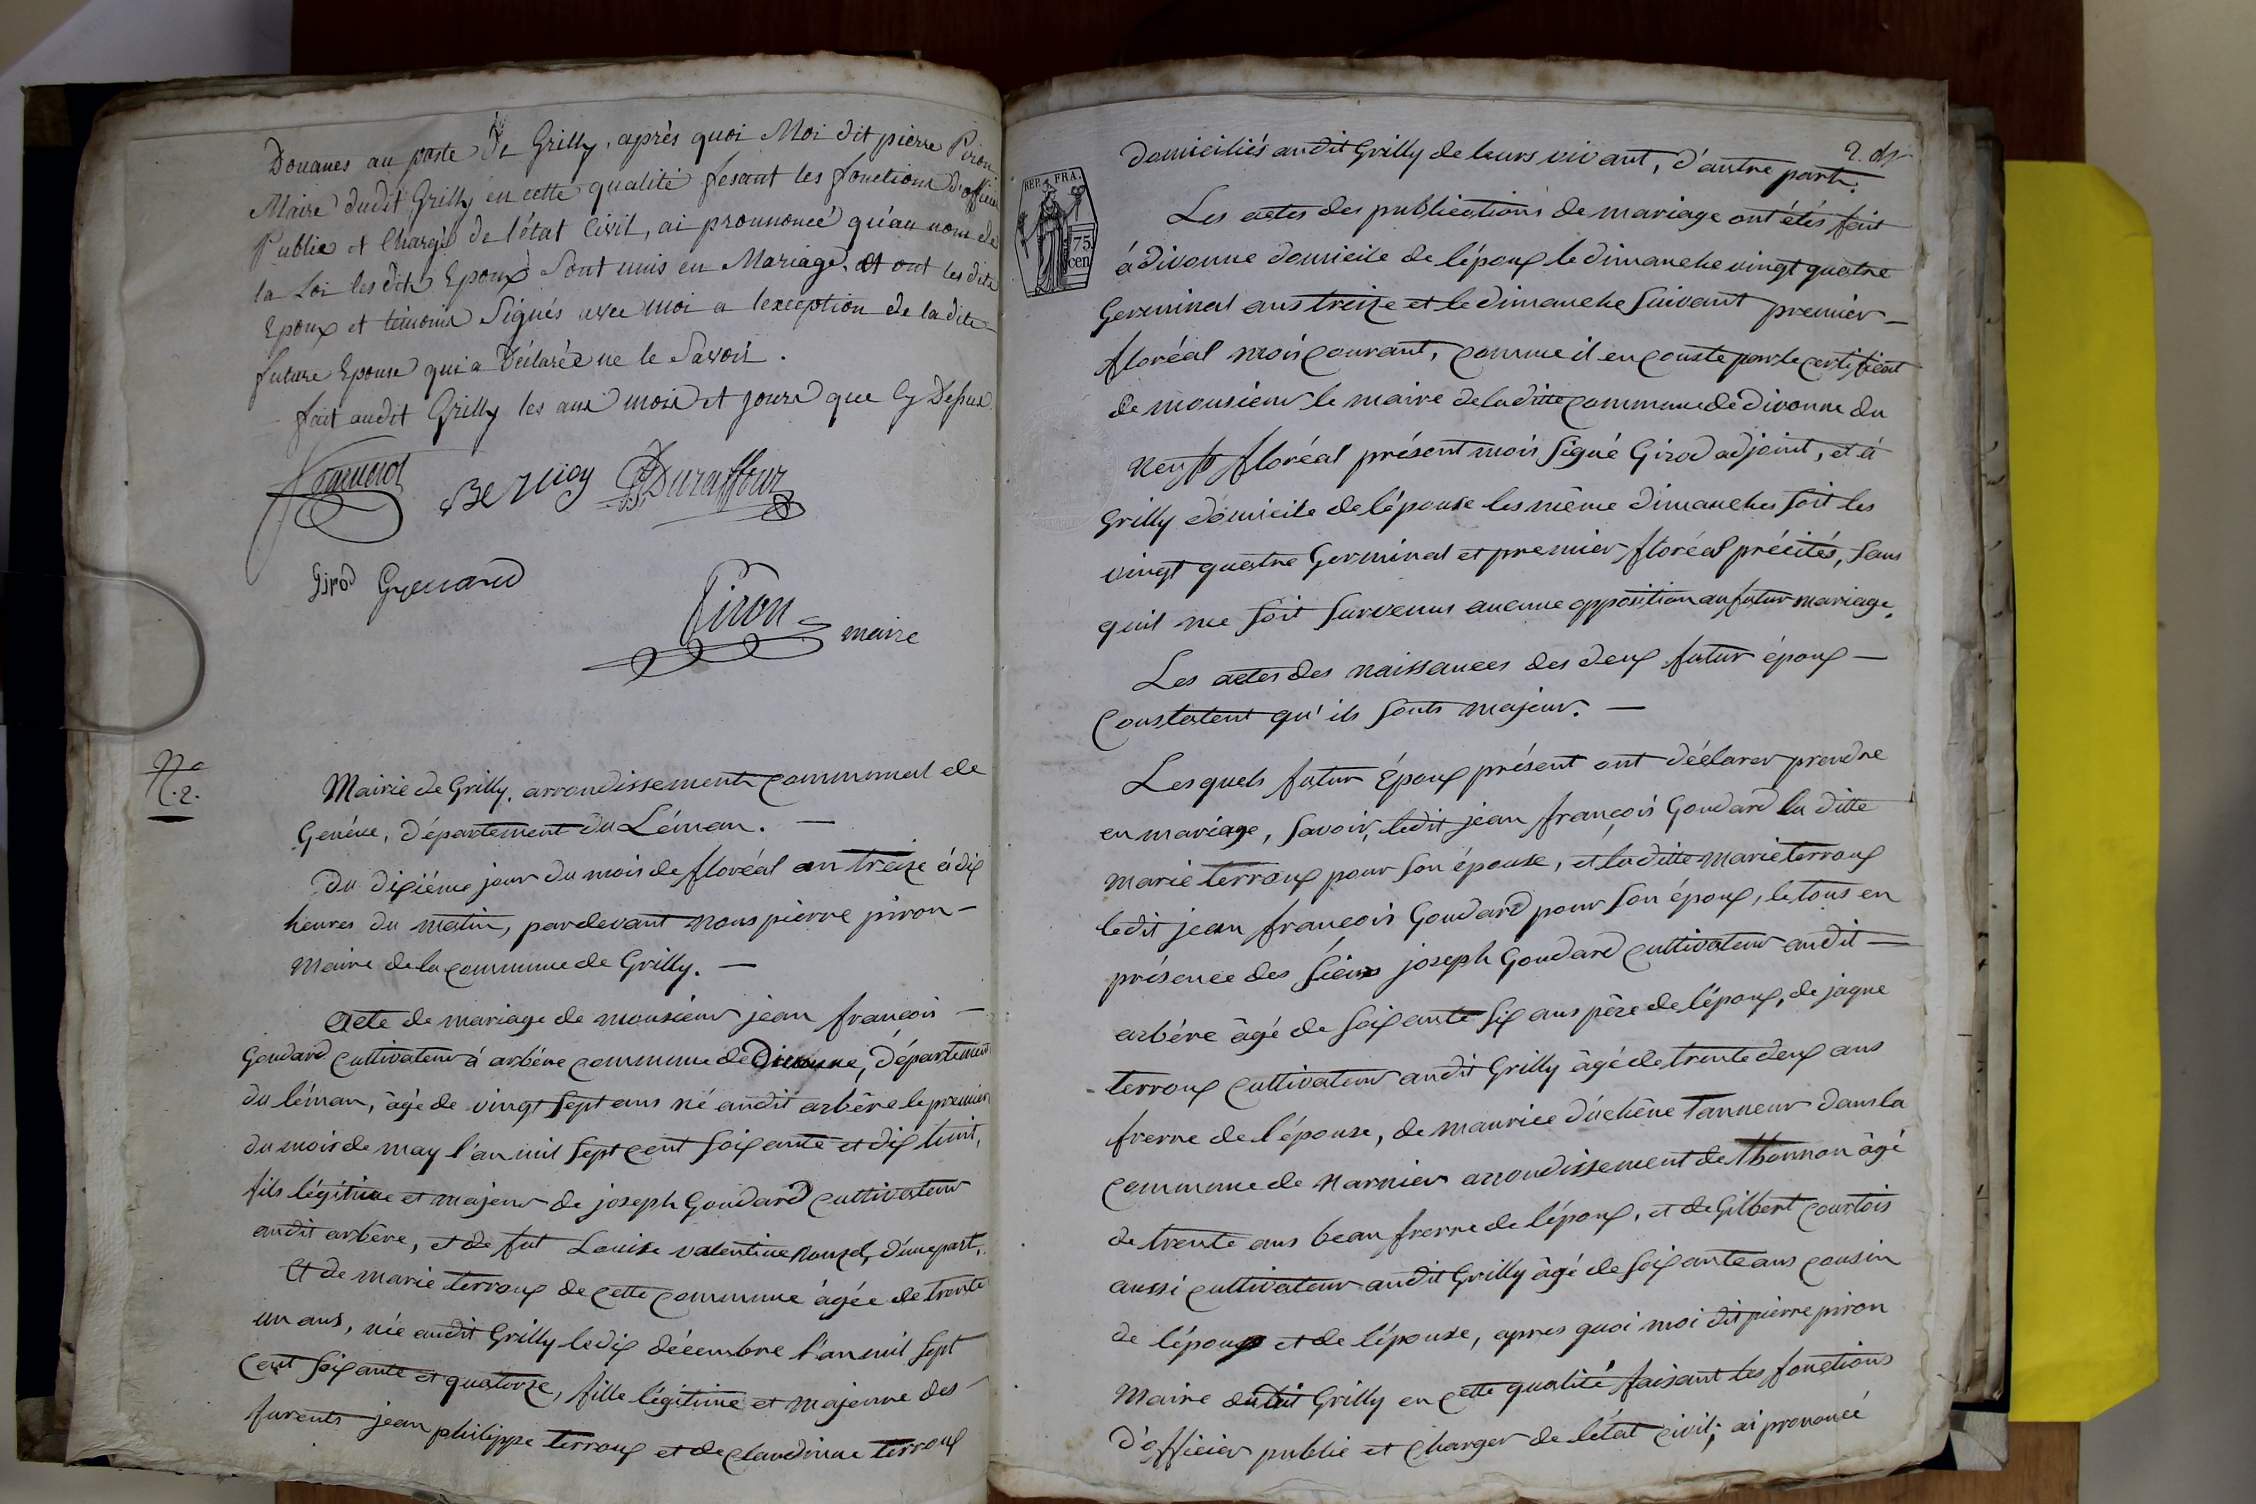 Douanes au poste de Grilly, après quoi Moi dit pierre Piron
Maire dudit Grilly en cette qualité fesant les fonctions d'officier
Public et Chargé de l'état Civil, ai prononcé qu'au nom de
la Loi les dits Epoux Sont unis en Mariage. et ont les dits
Epoux et témoins Signés avec moi a lexception de la dite
future Epouse qui a Déclarée ne le Savoir.
fait audit Grilly les ans mois et jours que Cy Dessus
Duraffour
Girod Grenard
Piron
maire
No
2.
Mairie de Grilly, arrondissement communal de
Genéve, département du Léman. —
Du dixiéme jour du mois de floréal an treize à dix
heures du matin, pardevant nous pierre piron —
Maire de la commune de Grilly. —
Acte de mariage de monsieur jean françois —
Goudard cultivateur à arbére commune de Divonne, département
du léman, âgé de vingt sept ans né audit arbêre le premier
du mois de may l'an mil sept cent soixante et dix huit,
fils légitime et majeur de joseph Goudard cultivateur
audit arbêre, et de fut Louise valentine d'une part,
Et de marie terroux de cette commune âgée de trente
un ans, née audit Grilly le dix décembre l'an mil sept
cent soixante et quatorze, fille légitime et majeure des
furents jean philippe terroux et de claudinne terroux
2.
REP. FRA.
75
cen
domiciliés audit Grilly de leurs vivant, d'autre part.
Les actes des publications de mariage ont étés fait
à divonne domicile de l'époux le dimanche vingt quatre
Germinal ans treize et le dimanche suivant premier —
floréal mois courant, comme il en conste par le certificat
de monsieur le maire de la ditte commune de divonne du
neuf floréal présent mois signé Girod adjoint, et à
Grilly domicile de l'épouse les même dimanches soit les
vingt quatre Germinal et premier floréal précités, sans
quil ne soit survenus aucune opposition au futur mariage.
Les actes des naissances des deux futur époux —
constatent qu'ils sonts majeur. —
Lesquels futur Époux présent ont déclarer prendre
en mariage, savoir, ledit jean françois Goudard la ditte
marie terroux pour son épouse, et la ditte marie terroux
ledit jean françois Goudard pour son époux, le tous en
présence des sieurs joseph Goudard cultivateur audit —
arbére âgé de soixante six ans père de l'époux, de jaque
terroux cultivateur audit Grilly âgé de trente deux ans
frerre de l'épouse, de maurice duchêne Tanneur dans la
commune de Marnier arrondissement de Thonnon âgé
de trente ans beau frerre de l'époux, et de Gilbert courtois
aussi cultivateur audit Grilly âgé de soixante ans cousin
de l'époux et de l'épouse, apres quoi moi dit pierre piron
Maire dudit Grilly en cette qualité faisant les fonctions
d'officier public et charger de l'état civil; ai prononcé